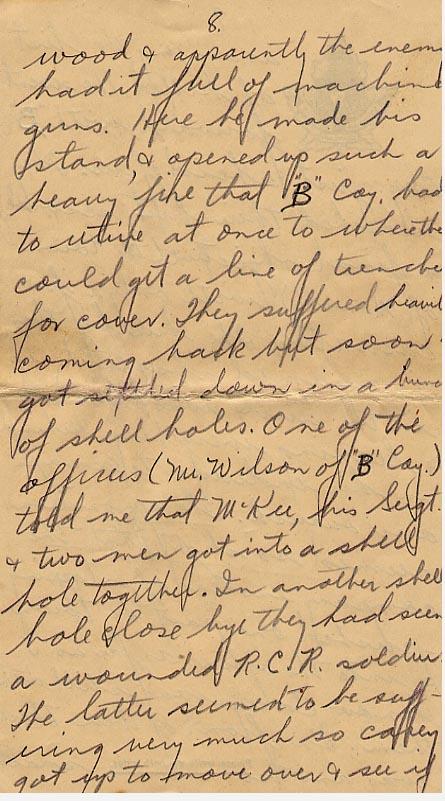 8.
wood & apparently the enem
had it full of machine
guns. Here he made his
stand, & opened up such a
heavy fire that "B" Coy. had
to retire at once to where the
could get a line of trenche
for cover. They suffered heavil
coming back but soon
got settled down in a bunc
of shell holes. One of the
officers (Mr. Wilson of "B" Coy.)
told me that McKee, his Sergt.
& two men got into a shell
hole together. In another shell
hole close bye they had seen
a wounded R.C.R. soldier.
The latter seemed to be suff-
ering very much so
got up to move over & see if